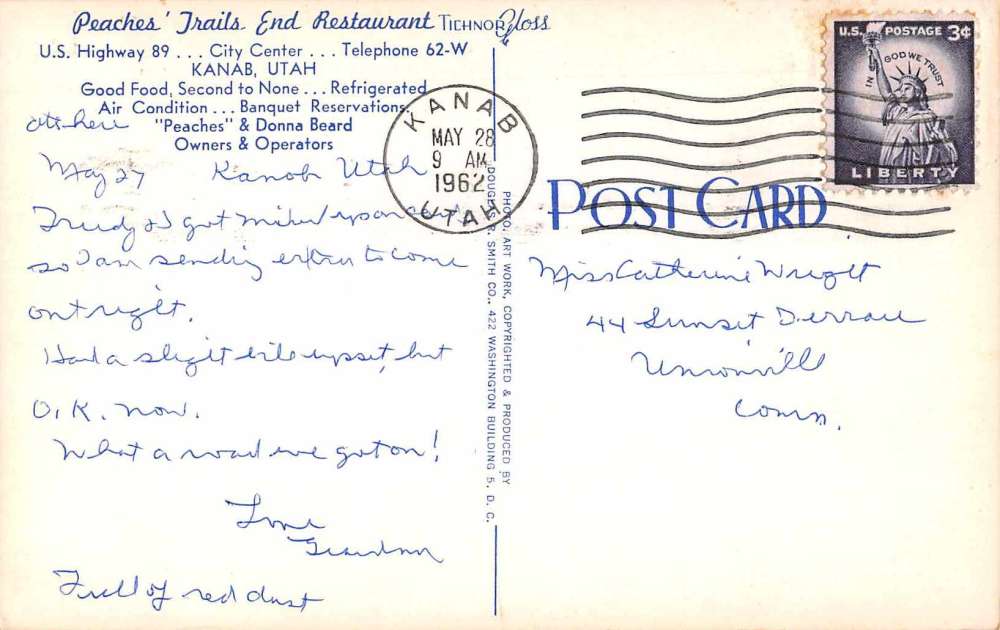 Peaches' Trails End Restaurant
TICHNOR Gloss
U.S. Highway 89 ... City Center ... Telephone 62-W
KANAB, UTAH
Good Food, Second to None ... Refrigerated
Air Condition ... Banquet Reservations
"Peaches" & Donna Beard
Owners & Operators
ate here
May 27 Kanab Utah
Trudy & I got mixed up on card
so I am sending extra to come
out right.
Had a slight bile upset, but
O.K. now.
What a road we got on!
Love
Grandma
Full of red dust
KANAB
MAY 28
9 AM
1962
UTAH
PHOTO, ART WORK, COPYRIGHTED & PRODUCED BY
DOUGLAS R. SMITH CO., 422 WASHINGTON BUILDING 5, D. C.
U.S. POSTAGE 3¢
IN GOD WE TRUST
LIBERTY
POST CARD
Miss Catherine Wright
44 Sunset Terrace
Unionville
Conn.